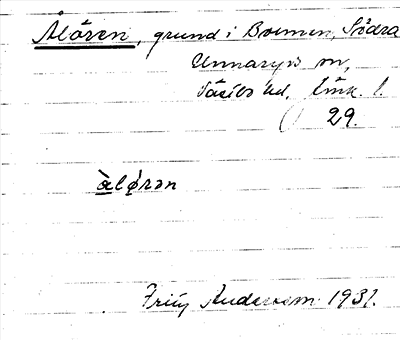 Ålören, grund i Bolmen, Södra
Unnaryds sn,
Västbo hd, Smk. l.
() 29.
àlǿrən
Frits Andersson 1931.